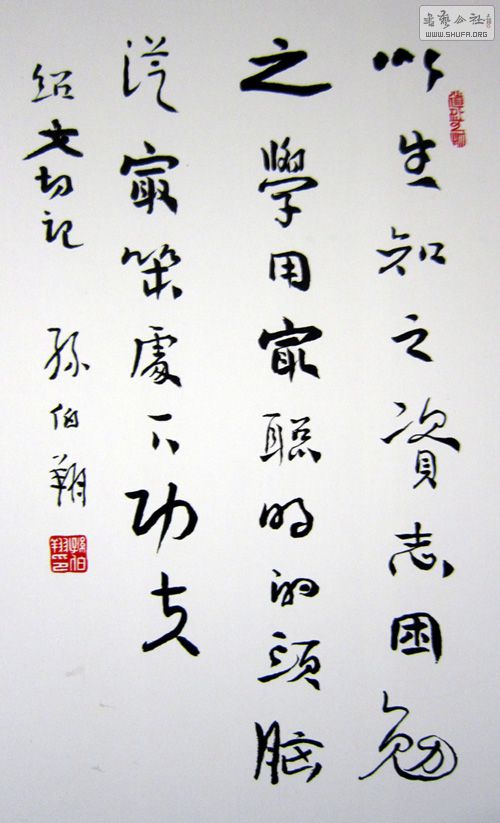 書藝公社
WWW.SHUFA.ORG
以生知之資志困勉
之學用最聰明的頭腦
從最笨處下功夫
紹文切記 孫伯翔
孫伯翔印